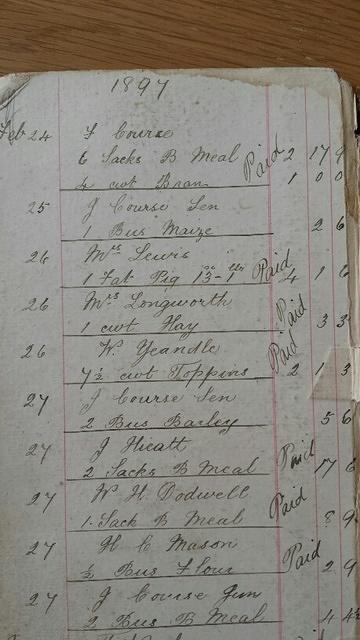 1897
Feb 24 F Course
6 Sacks B Meal Paid 2 17 9
½ cwt Bran 1 0 0
25 J Course Sen
1 Bus Maize 2 6
26 Mrs Lewis
1 Fat Pig Paid 4 1 6
26 Mrs Longworth
1 cwt Hay Paid 3 3
26 W. Yeandle
7½ cwt Toppins Paid 2 1 3
27 J Course Sen
2 Bus Barley 5 6
27 J Hieatt
2 Sacks B Meal Paid 17 6
27 W. H. Dodwell
1 Sack B Meal Paid 8 9
27 H C Mason
½ Bus Flour Paid 2 9
27 J Course Jun
2 Bus B Meal 4 4½